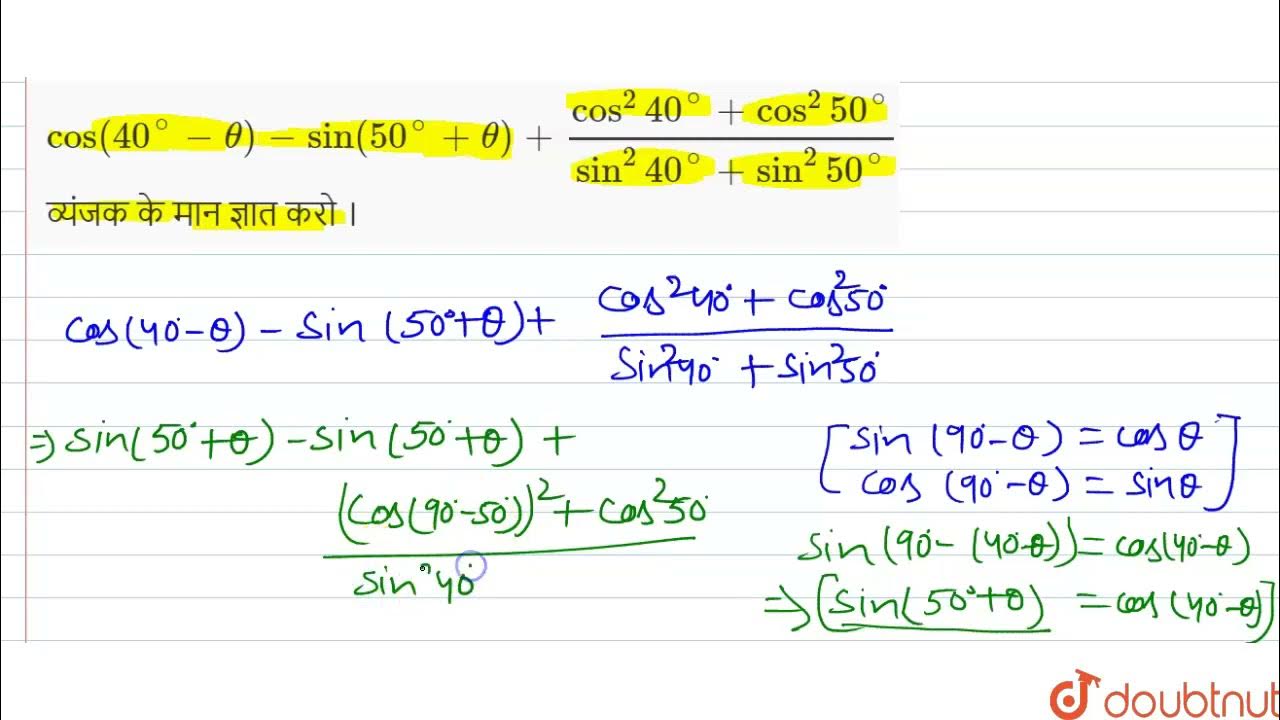 cos(40° − θ) − sin(50° + θ) + (cos² 40° + cos² 50°)/(sin² 40° + sin² 50°)
व्यंजक के मान ज्ञात करो ।
cos(40° − θ) − sin (50° + θ) + (cos² 40° + cos² 50°)/(sin² 40° + sin² 50°)
⇒ sin(50° + θ) − sin(50° + θ) +
((cos(90° − 50°))² + cos² 50°)/(sin² 40°
[sin (90° − θ) = cos θ
cos (90° − θ) = sin θ]
sin(90° − (40° − θ)) = cos(40° − θ)
⇒ [sin(50° + θ) = cos(40° − θ)]
doubtnut